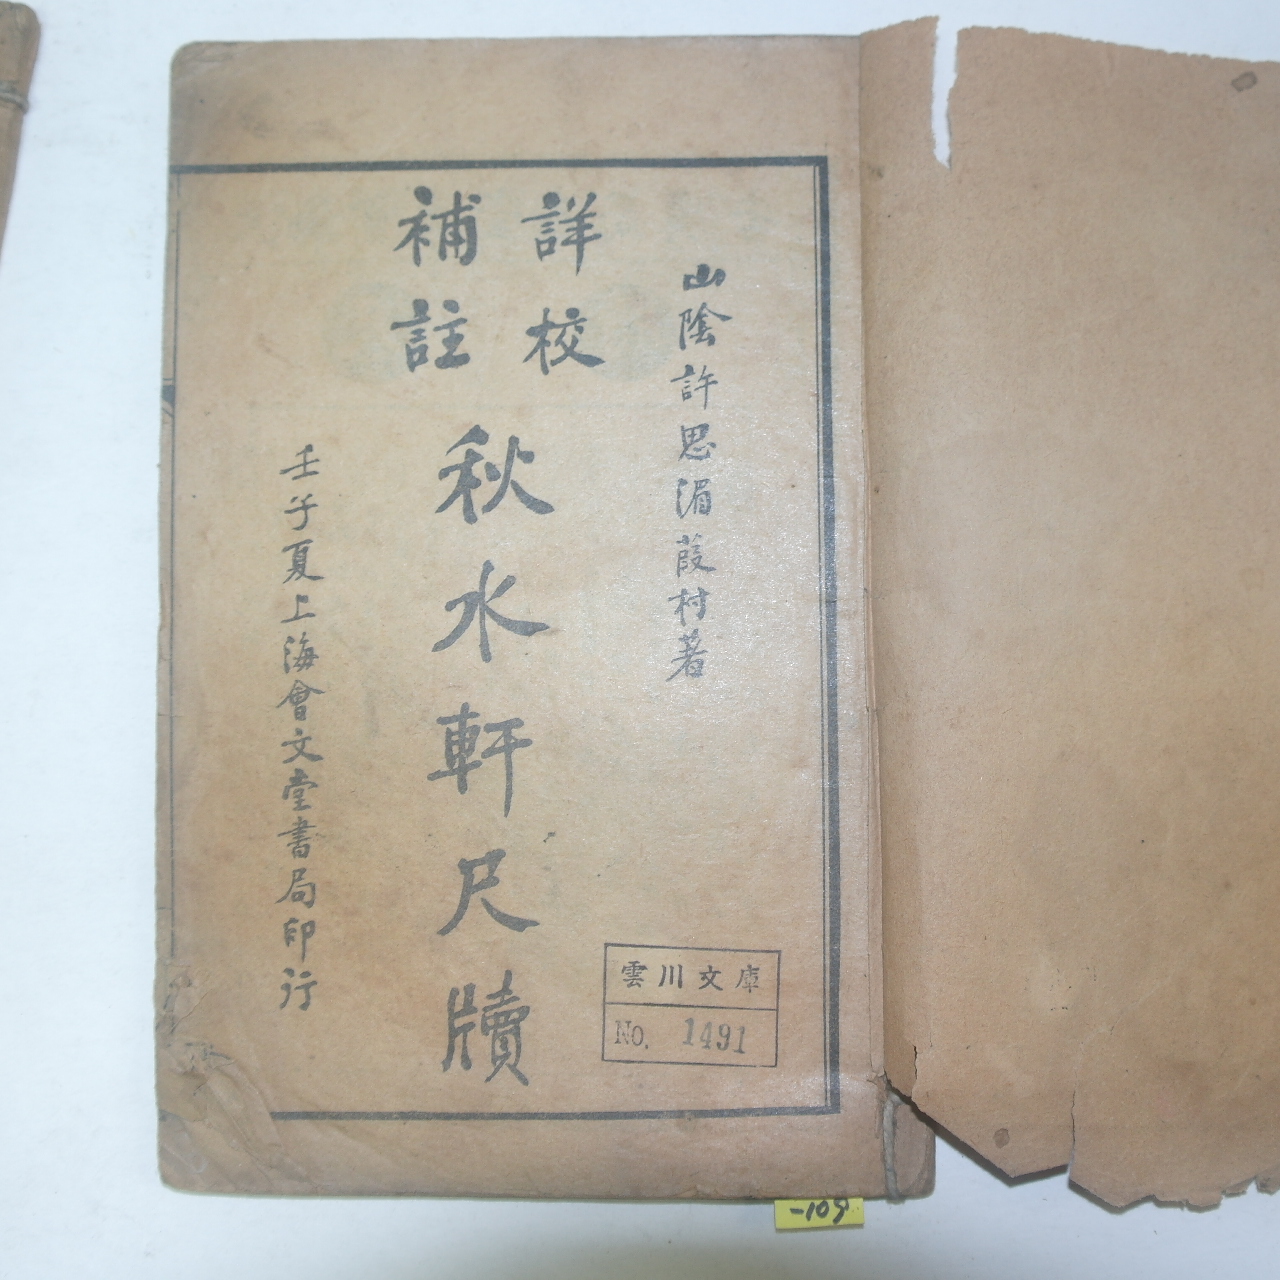 山陰許思湄葭村著
詳校
補註
秋水軒尺牘
壬子夏上海會文堂書局印行
雲川文庫
No. 1491
-109